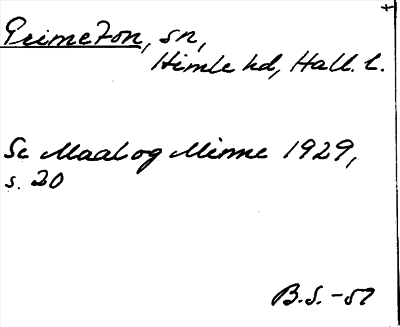 Grimeton, sn,
Himle hd, Hall. l.
Se Maal og Minne 1929,
s. 20
B.S. -57